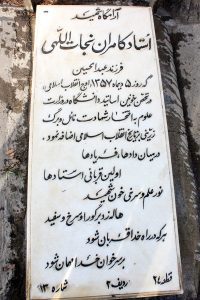 آرامگاه شهید
استاد کامران نجات اللهی
فرزند عبدالحسین
که روز ۵ دیماه ۱۳۵۷ (اوج انقلاب اسلامی)
در تحصن خونین اساتید دانشگاه در وزارت
علوم به افتخار شهادت نائل و برگ
زرینی بر نتایج انقلاب اسلامی اضافه نمود
در میان دادها، فریادها
اولین قربانی استادها
نور علم و سرخی خون شهید
هاله زد بر گور او سرخ و سفید
هر که در راه خدا قربان شود
بر سر خوان خدا مهمان شود
قطعه ۲۴ ردیف ۲ شماره ۱۳